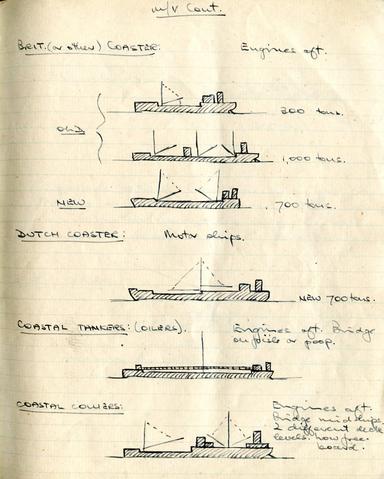 M/V Cont.
BRIT. (or other) COASTER: Engines aft.
300 tons.
OLD
1,000 tons.
NEW 700 tons.
DUTCH COASTER: Motor ships.
NEW 700 tons.
COASTAL TANKERS: (OILERS). Engines aft. Bridge
or poop.
COASTAL COLLIERS: Engines aft.
Bridge midships
2 different deck
levels. Low free
board.